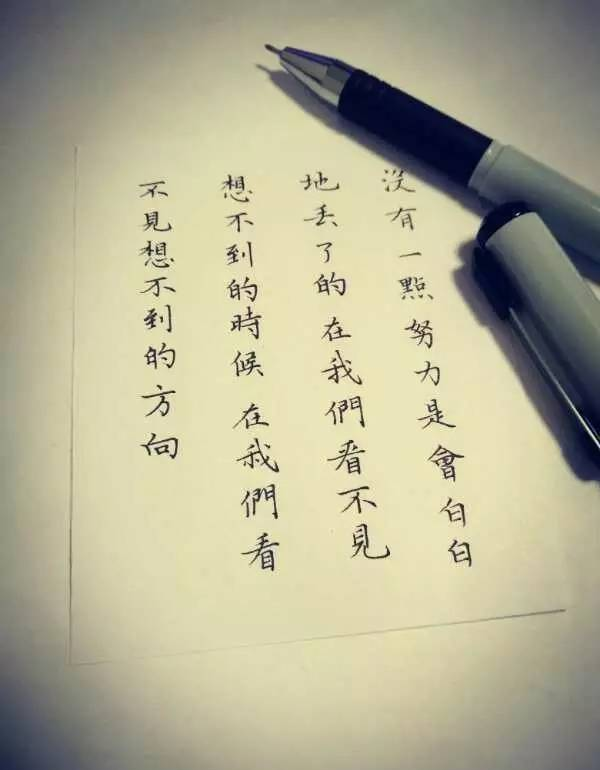 沒有一點努力是會白白
地丟了的 在我們看不見
想不到的時候 在我們看
不見想不到的方向